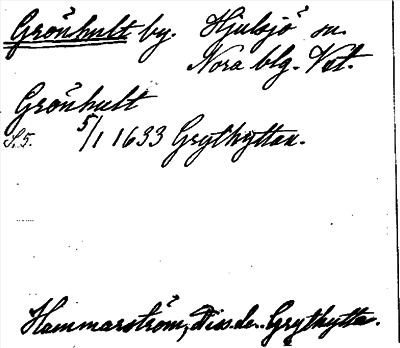 Grönhult by. Hjulsjö sn.
Nora blg. Vst.
Grönhult
S. 5. 5/1 1633 Grythyttan.
Hammarström, Diss. de. Grythytta.